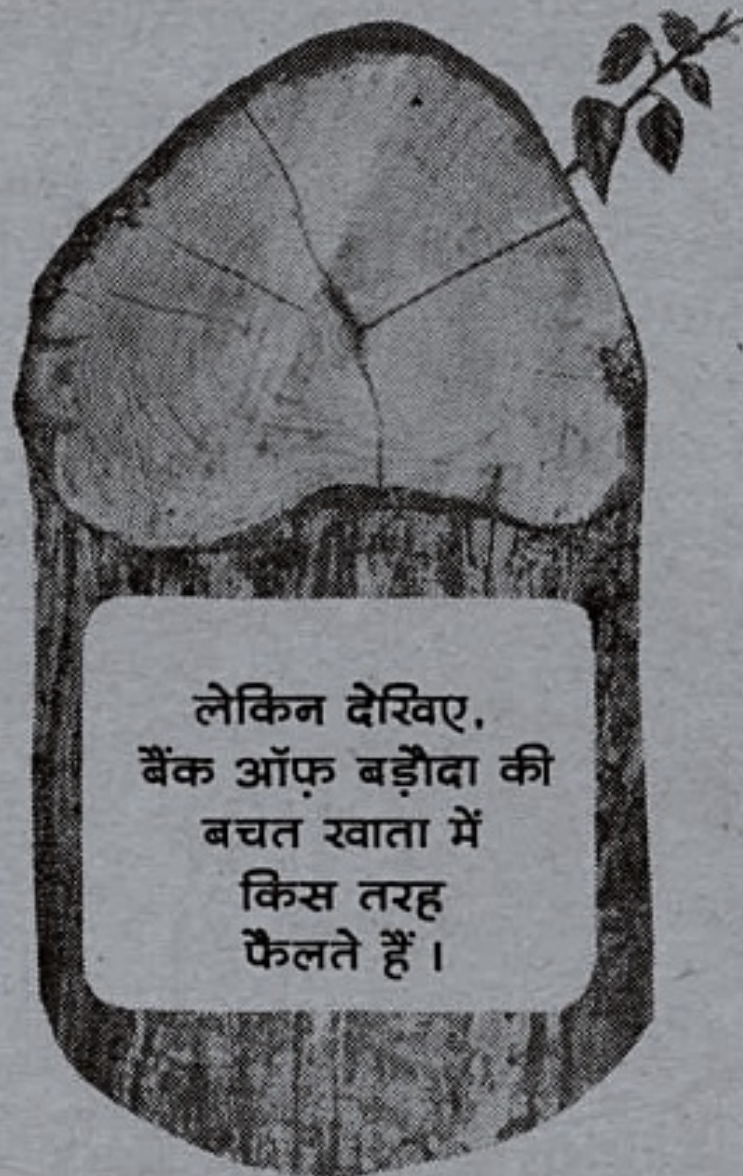 लेकिन देखिए.
बैंक ऑफ़ बड़ौदा की
बचत खाता में
किस तरह
फैलते हैं ।